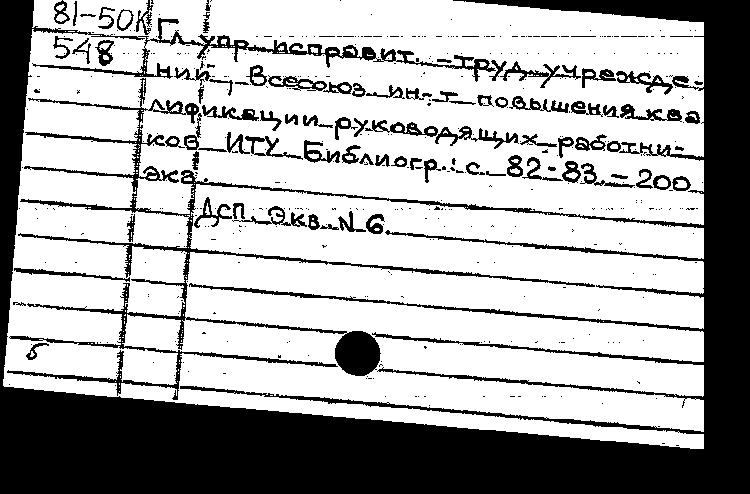 81-50К Гл. упр. исправит.-труд. учрежде-
548 ний, Всесоюз. ин-т повышения ква
лификации руководящих работни-
ков ИТУ. Библиогр.: с. 82-83. - 200
экз.
Дсп. Экз. N 6.
б